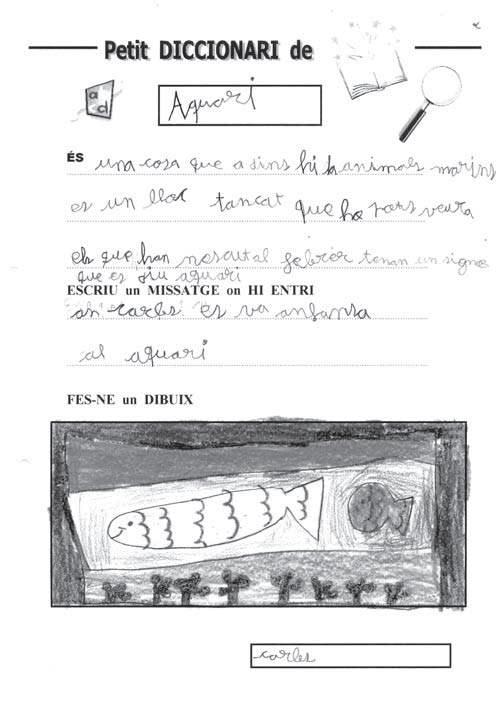 Petit DICCIONARI de
a
d
Aquari
ÉS una cosa que a dins hi ha animals marins
es un lloc tancat que ho pots veura
els que han nascut al febrer tenan un signe
que es diu aquari
ESCRIU un MISSATGE on HI ENTRI
an carles es va anfansa
al aquari
FES-NE un DIBUIX
carles